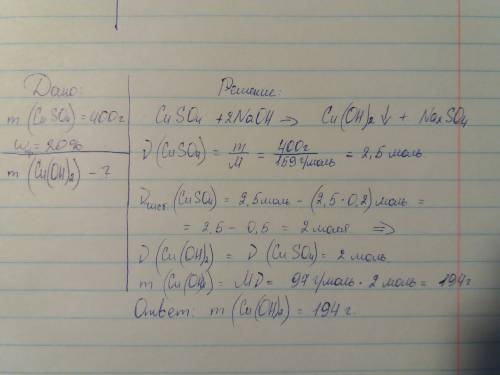 Дано:
m (CuSO₄) = 400г
ωₚ = 20%
m (Cu(OH)₂) - ?
Решение:
CuSO₄ + 2NaOH => Cu(OH)₂ ↓ + Na₂SO₄
ν (CuSO₄) = m/M = 400г/159г/моль = 2,5 моль
(CuSO₄) = 2,5моль - (2,5 · 0,2) моль =
= 2,5 - 0,5 = 2 моля =>
ν (Cu(OH)₂) = ν (CuSO₄) = 2 моль
m (Cu(OH)₂) = Mν = 97 г/моль · 2 моль = 194г
Ответ: m (Cu(OH)₂) = 194 г.